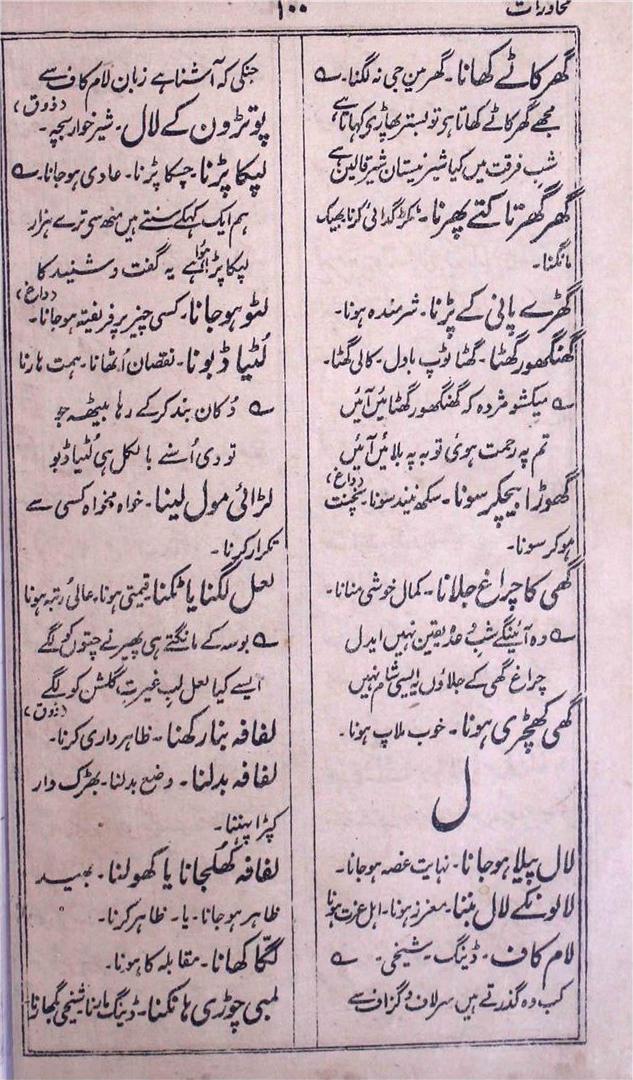 محاورات
۱۰۰
گھر کاٹے کھانا۔ گھر میں جی نہ لگنا۔ ؎
مجھے گھر کاٹے کھاتا ہی تو بستر پھاڑی کہاتا ہے
شبِ فرقت میں کیا شیر نیستان شیر قالین ہے
گھر گھرتا کتے پھرنا۔ ٹکڑ گدائی کرنا بھیک
مانگنا۔
گھڑے پانی کے پڑنا۔ شرمندہ ہونا۔
گھنگھور گھٹا۔ گھٹا ٹوپ بادل۔ کالی گھٹا۔
؎ میکشو مژدہ کہ گھنگھور گھٹائیں آئیں
تم پہ رحمت ہوئی توبہ پہ بلائیں آئیں
(داغ)
گھوڑا بیچکر سونا۔ سکھ نیند سونا۔ نچنت
ہو کر سونا۔
گھی کا چراغ جلانا۔ کمال خوشی منانا۔
؎ وہ آئینگے شبِ وعدہ یقین نہیں ایدل
چراغ گھی کے جلاؤں یہ ایسی شام نہیں
گھی کھچڑی ہونا۔ خوب ملاپ ہونا۔
ل
لال پیلا ہو جانا۔ نہایت غصہ ہو جانا۔
لالونکے لال بننا۔ معزز ہونا۔ اہل عزت ہونا
لام کاف۔ ڈینگ۔ شیخی۔ ؎
کب وہ گذرتے ہیں سر لاف و گزاف سے
جنکی کہ آشنا ہے زبان لام کاف سے
(ذوق)
پوتڑون کے لال۔ شیر خوار بچہ۔
لپکا پڑنا۔ چسکا پڑنا۔ عادی ہو جانا۔ ؎
ہم ایک کہکے سنتے ہیں منھ سی ترے ہزار
لپکا پڑا ہوا ہے یہ گفت و شنید کا
(داغ)
لٹو ہو جانا۔ کسی چیز پر فریفتہ ہو جانا۔
لُٹیا ڈبونا۔ نقصان اُٹھانا۔ ہمت ہارنا
؎ دُکان بند کر کے رہا بیٹھہ جو
تو دی اُسنے بالکل ہی لُٹیا ڈبو
لڑائی مول لینا۔ خواہ مخواہ کسی سے
تکرار کرنا۔
لعل لگنا یا ٹکنا۔ قیمتی ہونا۔ عالی رتبہ ہونا
؎ بوسہ کے مانگتے ہی پھیرنے چتون کو لگے
ایسے کیا لعل لبِ غیرتِ گلشن کو لگے
(ذوق)
لفافہ بنا رکھنا۔ ظاہرداری کرنا۔
لفافہ بدلنا۔ وضع بدلنا۔ بھڑک دار
کپڑا پہننا۔
لفافہ کھُلجانا یا کھولنا۔ بھید
ظاہر ہو جانا۔ یا۔ ظاہر کرنا۔
لگّا کھانا۔ مقابلہ کا ہونا۔
لمبی چوڑی ہانکنا۔ ڈینگ مارنا شیخی بگھارنا